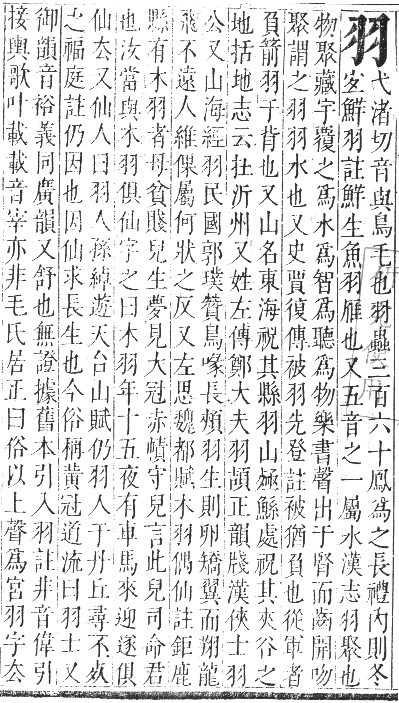 羽
弋渚切音與鳥毛也羽蟲三百六十鳳爲之長禮內則冬
宐鮮羽註鮮生魚羽雁也又五音之一屬水漢志羽聚也
物聚藏宇覆之爲水爲智爲聽爲物樂書聲出于腎而齒開吻
聚謂之羽羽水也又史賈復傳被羽先登註被猶負也從軍者
負箭羽于背也又山名東海祝其縣羽山殛鯀處祝其夾谷之
地括地志云在沂州又姓左傳鄭大夫羽頡正韻牋漢俠士羽
公又山海經羽民國郭璞贊鳥喙長頰羽生則卵矯翼而翔龍
飛不遠人維倮屬何狀之反又左思魏都賦木羽偶仙註鉅鹿
縣有木羽者母貧賤兒生夢見大冠赤幘守兒言此兒司命君
也汝當與木羽俱仙字之曰木羽年十五夜有車馬來迎遂俱
仙厺又仙人曰羽人孫綽遊天台山賦仍羽人于丹丘尋不𣦸
之福庭註仍因也因仙求長生也今俗稱黃冠道流曰羽士又
御韻音裕義同廣韻又舒也無證據舊本引入羽註非音偉引
接輿歌叶載載音宰亦非毛氏居正曰俗以上聲爲宮羽字厺